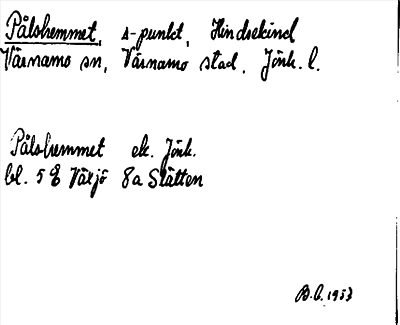 Pålshemmet, s-punkt, Hindsekind
Värnamo sn, Värnamo stad, Jönk. l.
Pålshemmet ek. Jönk.
bl. 5 E Växjö 8a Slätten
B.O. 1953